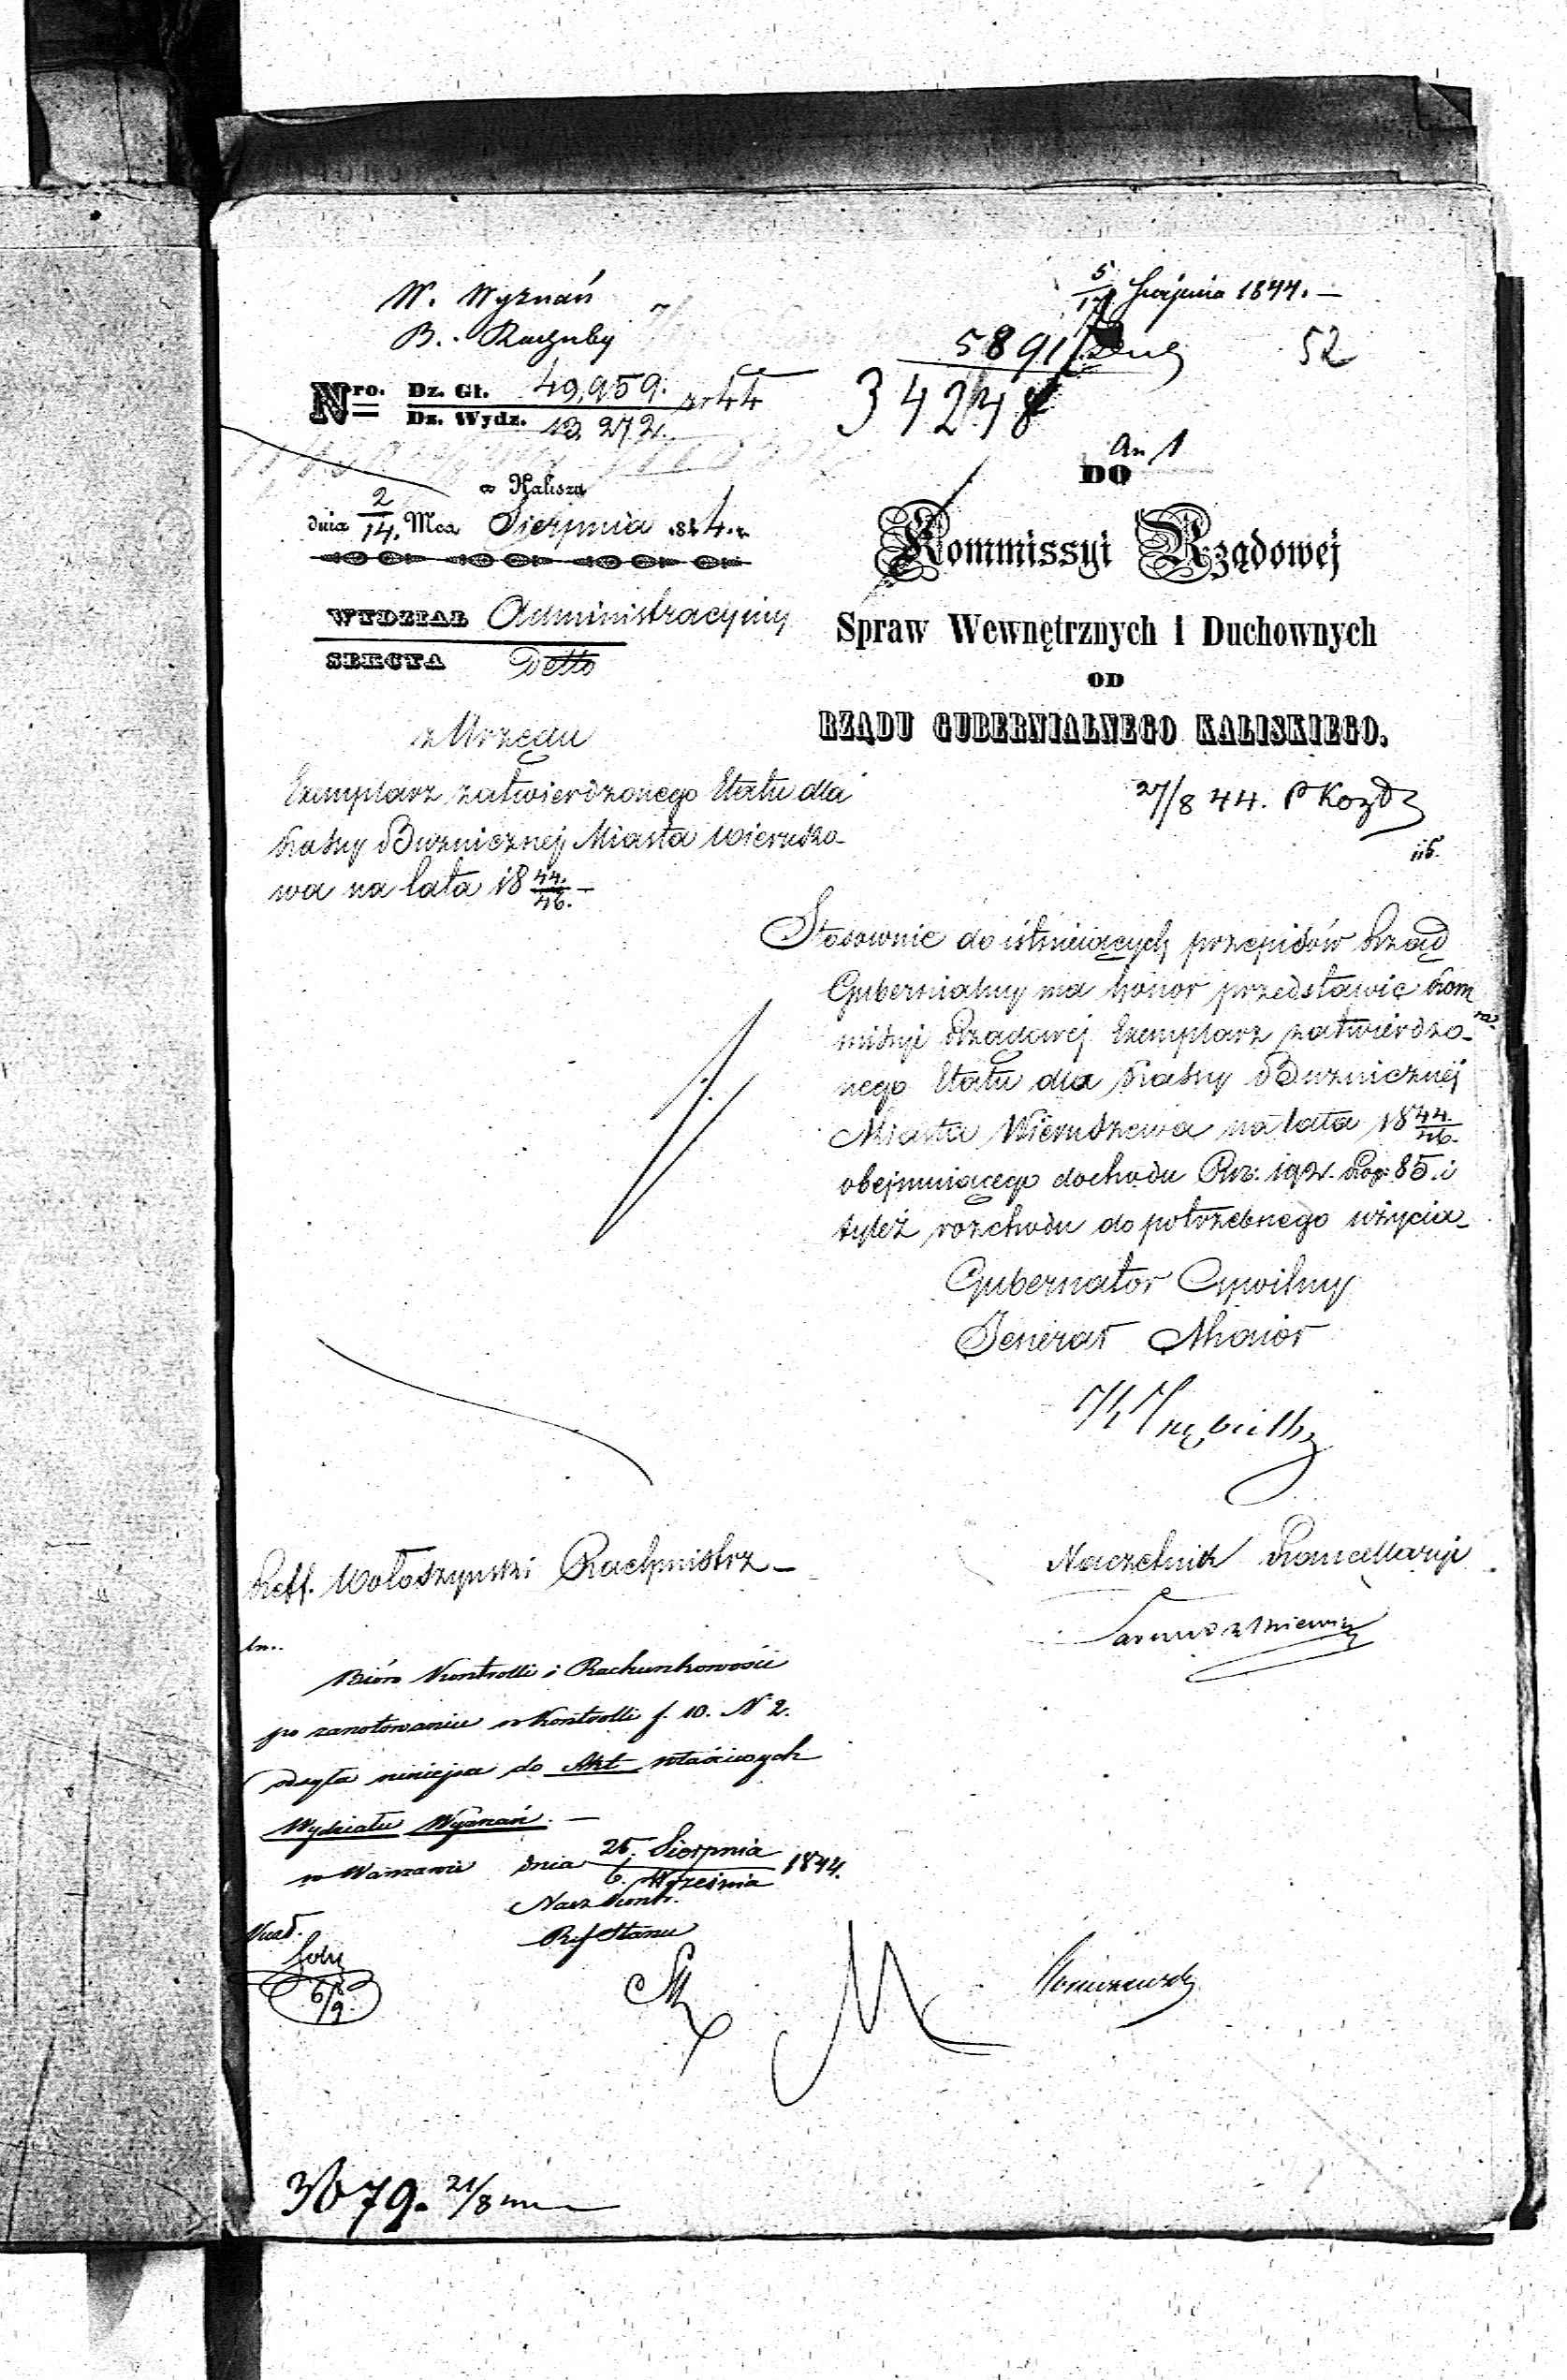 W. Wyznań
B. Rachuby
5/17 Sierpnia 1844. —
5891
52
34248
Nro. Dz. Gł. 49,959. z r 44
Dz. Wydz. 13,272.
An 1
w Kaliszu
dnia 2/14. Mca Sierpnia 1844. r.
WYDZIAŁ Administracyjny
SEKCYA Detto
DO
Kommissyi Rządowej
Spraw Wewnętrznych i Duchownych
OD
RZĄDU GUBERNIALNEGO KALISKIEGO.
z Urzędu
Exemplarz zatwierdzonego Etatu dla
Kassy Bużnicznej Miasta Wieruszo-
wa na lata 18 44./46. —
27/8 44.
Stosownie do istnieiących przepisów Rząd
Gubernialny ma honor przedstawić Kom
missyi Rządowej Exemplarz zatwierdzo-
nego Etatu dla Kassy Bużnicznej
Miasta Wieruszowa na lata 18 44./46.
obejmuiącego dochodu Rs. 192. Kop. 85. i
tyleż rozchodu do potrzebnego użycia
Gubernator Cywilny
Jenerał Maior
Naczelnik Kancellaryi
Reff. Wołoszynski Rachmistrz —
Bióro Kontrolli i Rachunkowości
po zanotowaniu w Kontrolli f. 10. N 2.
odsyła niniejsze do Akt właściwych
Wydziału Wyznań. —
w Warszawie dnia 25. Sierpnia/6. Września 1844.
Nacz Kontr.
Ref Stanu
6/9.
3679. 21/8